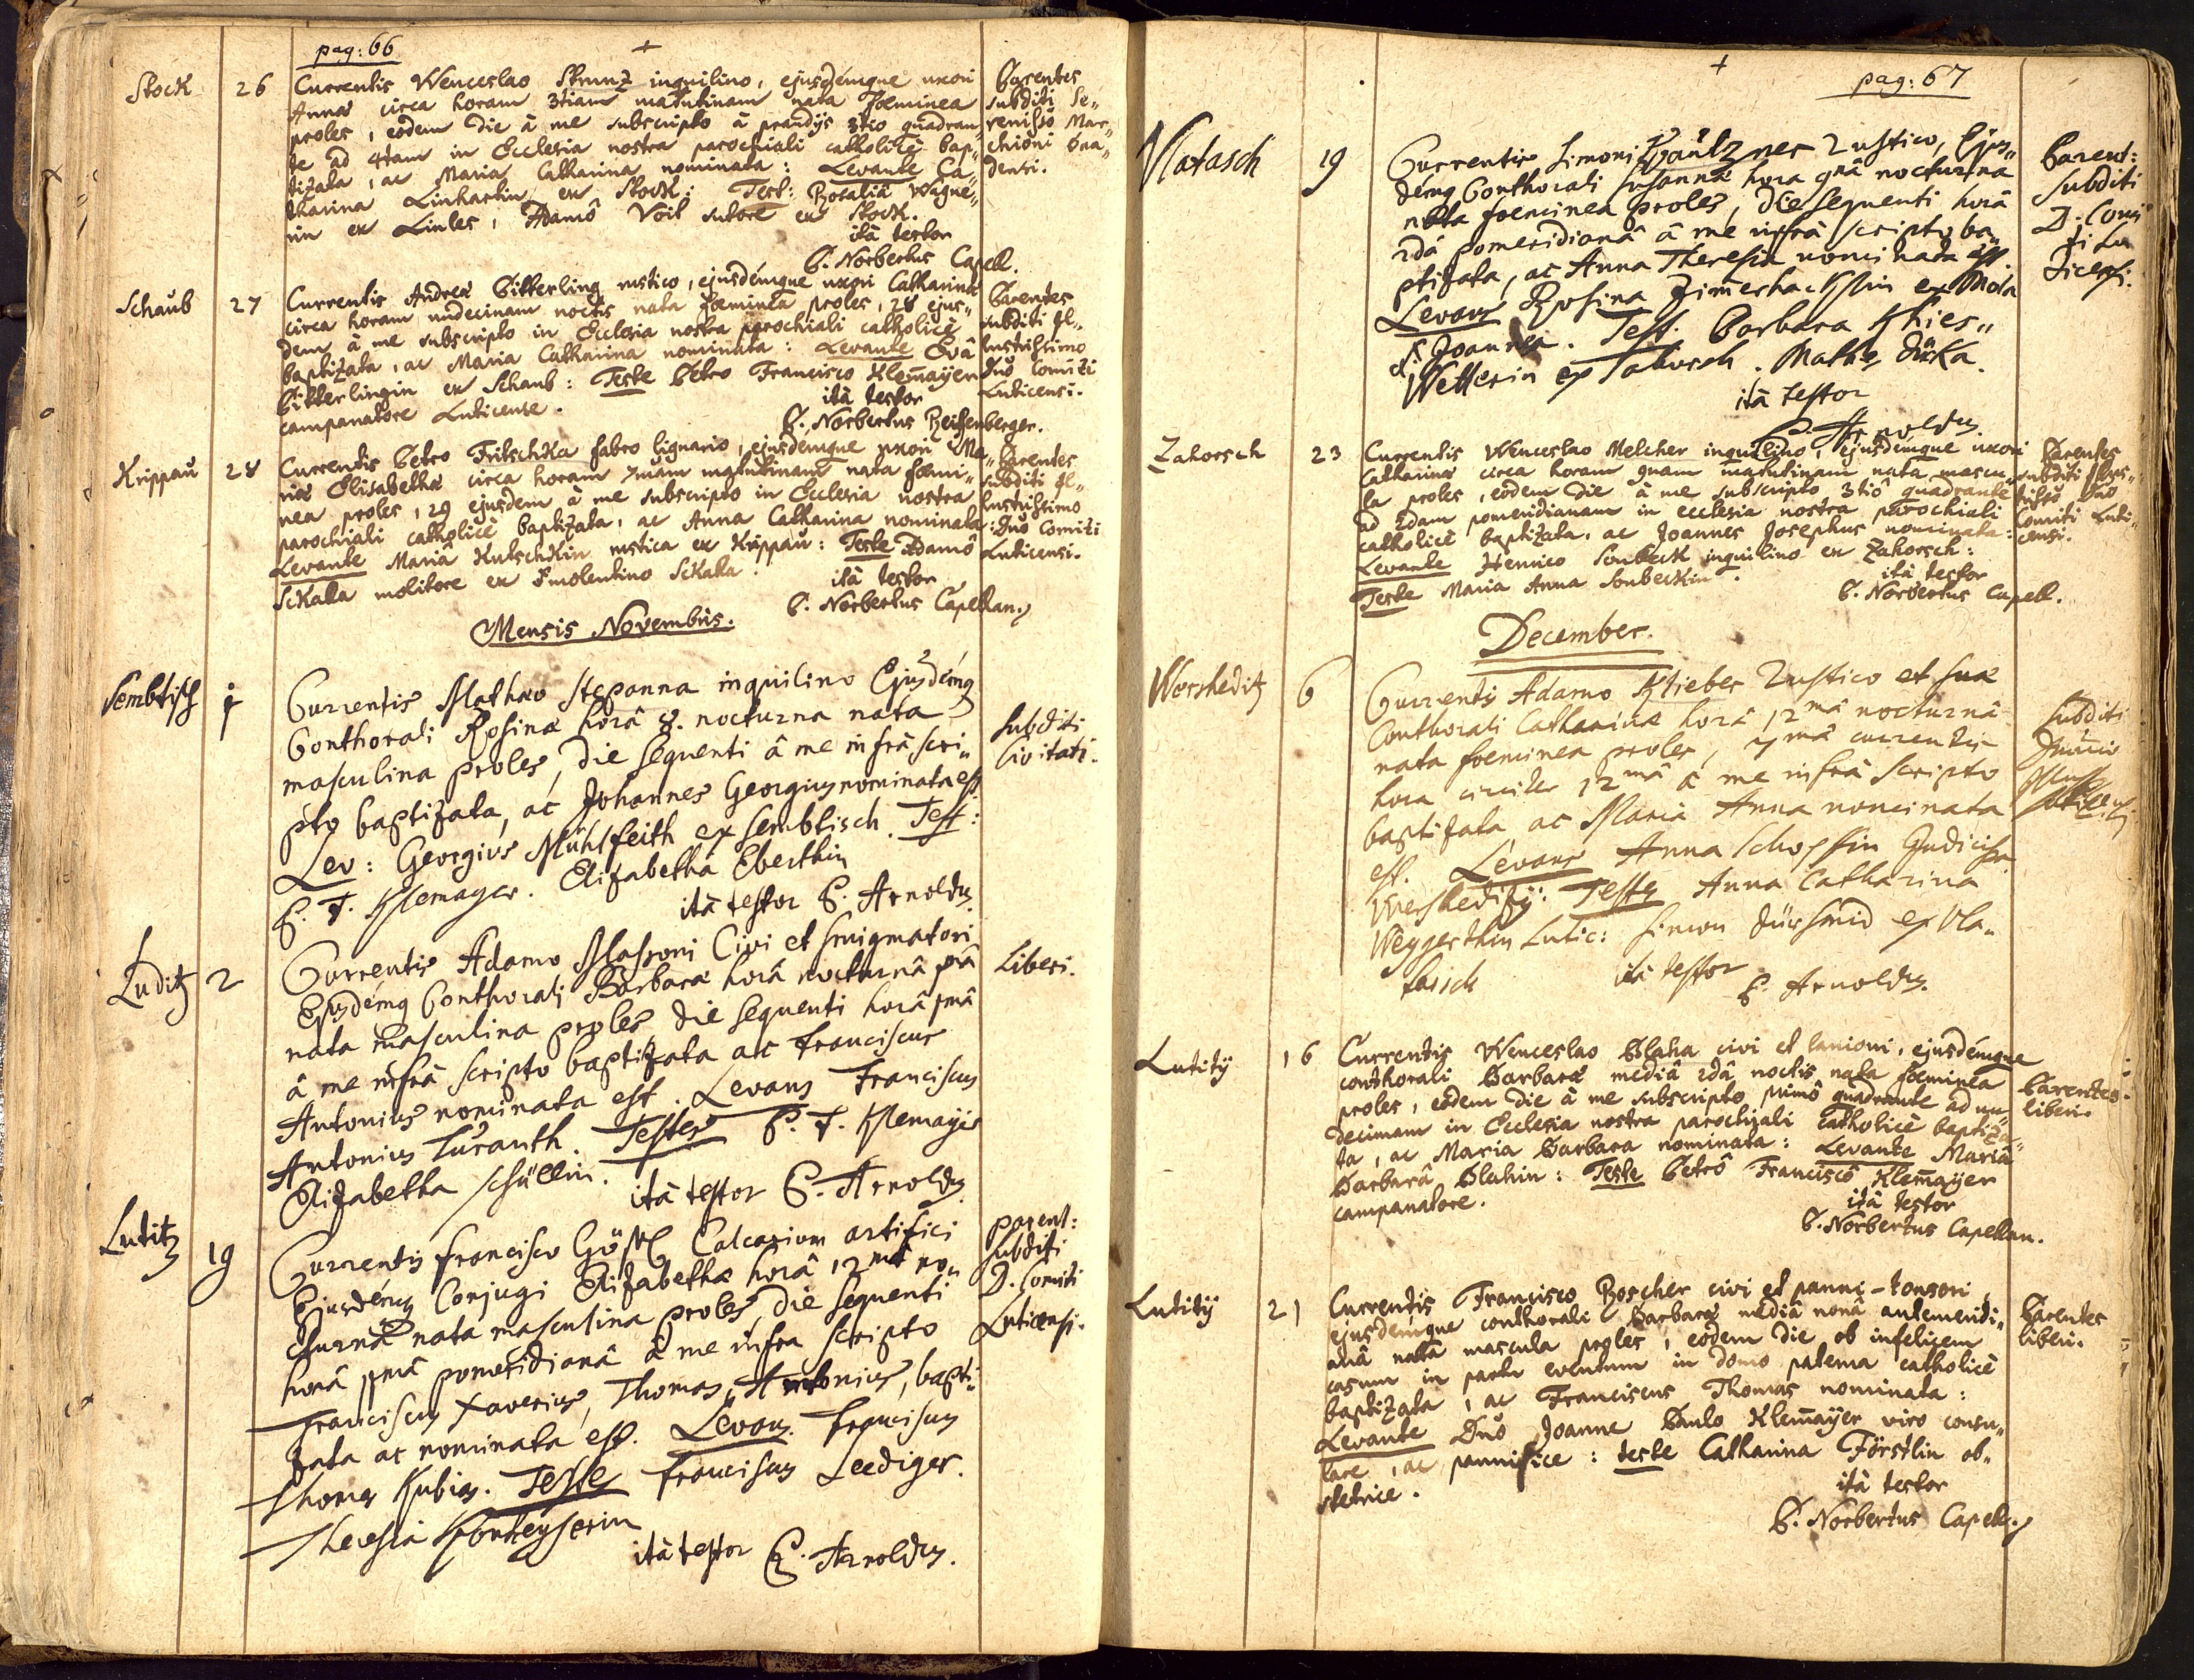 pag: 66
Stock
26
Currentis Wenceslao Strunz inquilino, ejusdémque uxori
Annæ circa horam 3tiam matutinam nata fœminea
proles, eodem die à me subscripto à prandijs 3tio quadran„
te ad 4tam in Ecclesia nostra parochiali catholicè bap„
tizata, ac Maria Catharina nominata: Levante Ca„
tharina Linhartin ex Stock: Test: Rosaliâ Wagne„
rin ex Lintes, Adamô Voit sutore ex Stock.
ità testor
P. Norbertus Capell.
Parentes
subditi Se„
renisso Mar„
chioni Ba„
densi.
Schaub
27
Currentis Andreæ Bitterling rustico, ejusdémque uxori Catharinæ
circa horam undecimam noctis nata fœminea proles, 28 ejus„
dem à me subscripto in Ecclesia nostra parochiali catholicè
baptizata, ac Maria Catharina nominata: Levante Evâ
Bitterlingin ex Schaub: Teste Petro Francisco Klemaÿer
campanatore Luticense.
ità testor
P. Norbertus Reissenberger.
Parentes
subditi Il„
lustrissimo
Dnô Comiti
Luticensi.
Krippau
28
Currentis Petro Fritschka fabro lignario, ejusdémque uxori Ma„
riæ Elisabethæ circa horam 7mam matutinam nata fœmi„
nea proles, 29 ejusdem à me subscripto in Ecclesia nostra
parochiali catholicè baptizata, ac Anna Catharina nominata:
Levante Mariâ Kutschkin rustica ex Krippau: Teste Adamô
Skalla molitore ex molentino Skalla.
ità testor
P. Norbertus Capellan.
Parentes
subditi Il„
lustrissimo
Dnô Comiti
Luticensi.
Mensis Novembris.
Sembtisch
1
Currentis Mathæo Stepanna inquilino Ejusdémq
Conthorali Rosinæ horâ 8. nocturna nata
masculina proles, die sequenti â me infrà scri„
pto baptizata, ac Johannes Georgius nominata est
Lev: Georgius Mühlfeith ex Sembtisch. Test:
P. F. Klemayer. Elizabetha Eberthin
ità testor P. Arnoldus.
Subditi
Civitati.
Luditz
2
Currentis Adamo Massoni Civi et Smigmatori
Ejusdémq Conthorali Barbaræ horâ nocturnâ
nata masculina proles die sequenti horâ
â me infrà scripto baptizata ac Franciscus
Antonius nominata est. Levans Franciscus
Antonius Turanth. Testes P. F. Klemayer
Elizabetha Schüllin.
ità testor P. Arnoldus
Liberi.
Lutitz
19
Currentis Francisco Calcarium artifici
Ejusdémq Conjugi Elizabethæ horâ 12mâ no„
cturnâ nata masculina proles, die sequenti
horâ pomeridianâ â me infra scripto
Franciscus Xaverius, Thomas, Antonius, bapti„
zata ac nominata est. Levans Franciscus
Thomas Kubias. Testes Franciscus Leediger.
Theresia
ità testor P. Arnoldus.
parent:
subditi
D. Comiti
Luticensi.
pag: 67
Vlatasch
19
Currentis Simoni rustico, Ejus„
démq Conthorali Susannæ hora nocturna
nata foeminea proles, die sequenti horâ
2dâ pomeridianâ â me infrà scripto ba„
ptizata, ac Anna Theresia nominata est
Levans Rosina ex Mola
Joannea. Test: Barbara Khies„
Wetterin ex Sahorsch. Mathes
ità testor
P. Arnoldus.
Parent:
Subditi
D. Comi
ti Lu
ticensi.
Zahorsch
23
Currentis Wenceslao Melcher inquilino, ejusdémque uxori
Catharinæ circa horam matutinam nata mascu„
la proles, eodem die â me subscripto 3tiô quadrante
ad 2dam pomeridianam in ecclesia nostra parochiali
catholicè baptizata, ac Joannes Josephus nominata:
Levante Henrico Sonbeck inquilino ex Zahorsch:
Teste Maria Anna Sonbeckin.
ità testor
P. Norbertus Capell.
Parentes
subditi Illus„
trisso Dno
Comiti Luti„
censi.
December.
Wersheditz
6
Currentis Adamo Klieber rustico et suæ
Conthorali Catharinæ horâ 12mâ nocturnâ
nata foeminea proles, 7mâ currentis
hora circiter 12mâ â me infrà scripto
baptizata ac Maria Anna nominata
est. Levans Anna Schopffin
Testes Anna Catharina
Weggerthin Lutic: Simon ex Vla„
tasch
ità testor
P. Arnoldus.
Subditi
Lutitÿ
16
Currentis Wenceslao Blaha civi et lanioni, ejusdémque
conthorali Barbaræ mediâ 2dâ noctis nata fœminea
proles, eodem die â me subscripto primô quadrante ad un„
decimam in Ecclesia nostra parochiali catholicè baptiza„
ta, ac Maria Barbara nominata: Levante Mariâ
Barbarâ Blahin: Teste Petrô Franciscô Klemaÿer
campanatore.
ità testor
P. Norbertus Capellan.
Parentes
liberi.
Lutitÿ
21
Currentis Francisco Poscher civi et panni-tonsori,
ejusdémque conthorali Barbaræ mediâ nonâ antemeridi„
anâ nata mascula proles, eodem die ob infelicem
casum in partu eventum in domo paterna catholicè
baptizata, ac Franciscus Thomas nominata:
Levante Dnô Joanne Paulo Klemaÿer viro consu„
lare, ac pannifice: teste Catharina Förstlin ob„
stetrice.
ità testor
P. Norbertus Capell.
Parentes
liberi.